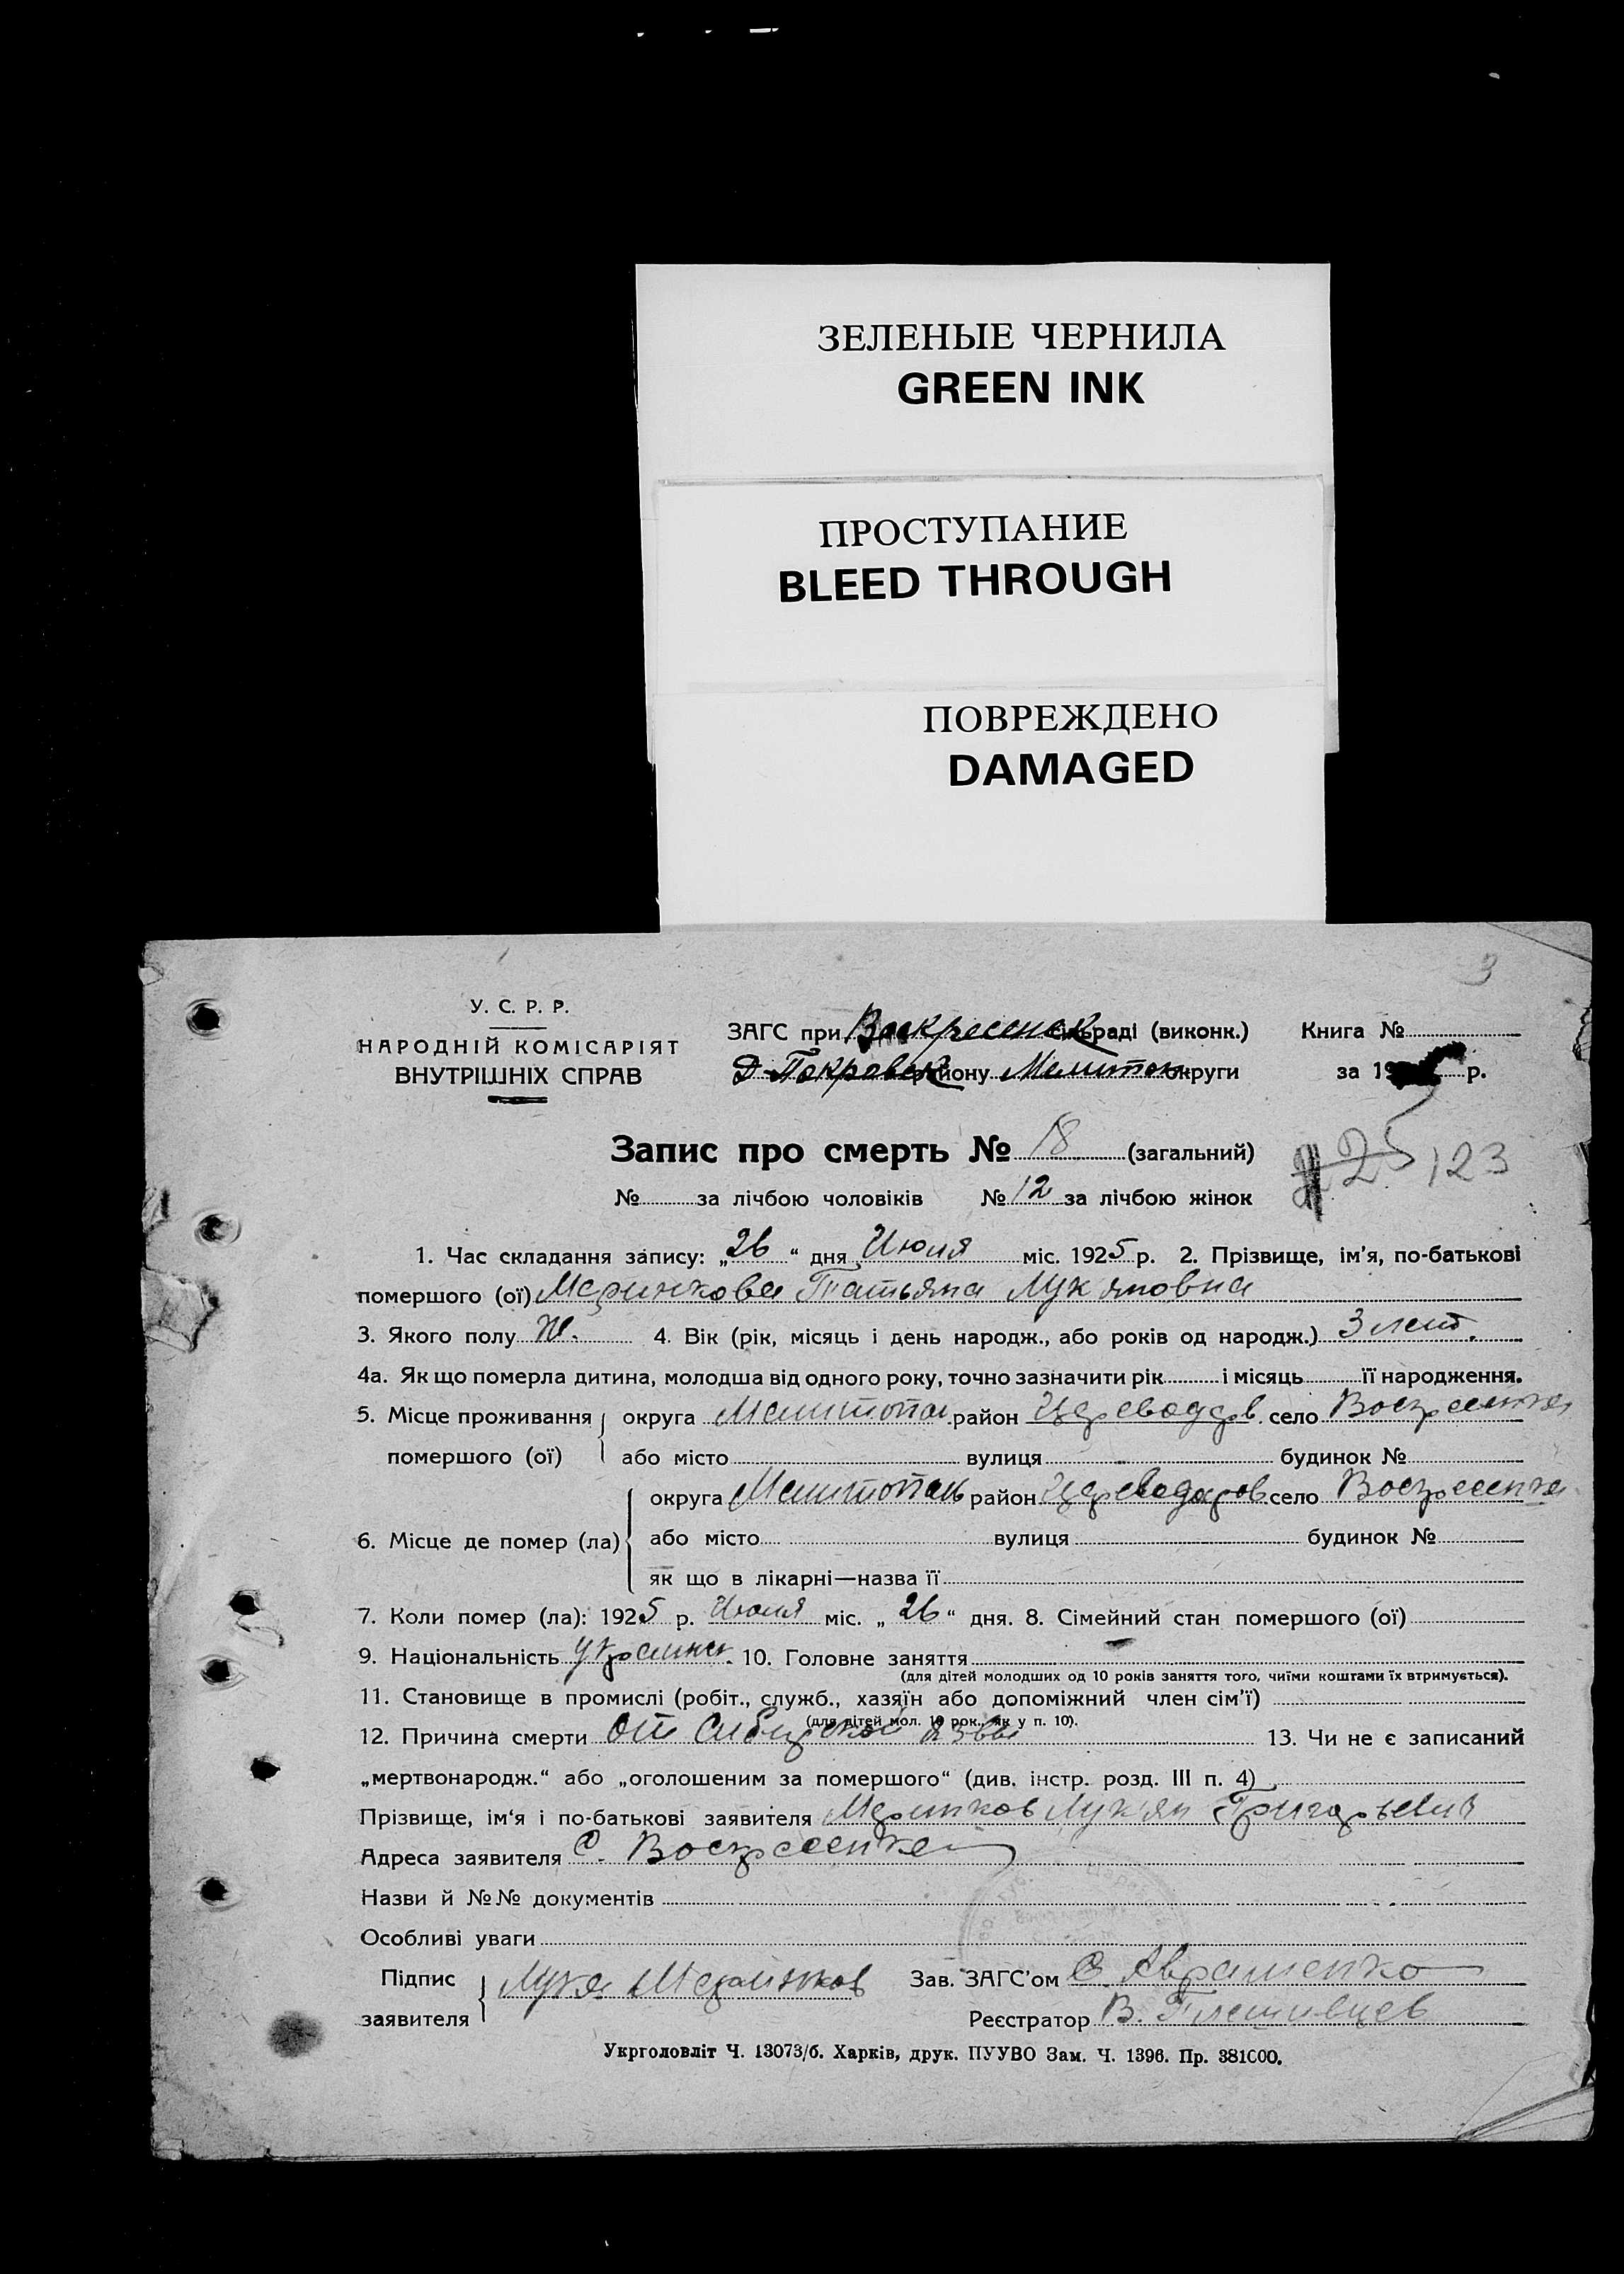 ЗЕЛЕНЫЕ ЧЕРНИЛА
GREEN INK
ПРОСТУПАНИЕ
BLEED THROUGH
ПОВРЕЖДЕНО
DAMAGED
3
У. С. Р. Р.
НАРОДНІЙ КОМІСАРІЯТ
ВНУТРІШНІХ СПРАВ
ЗАГС при Воскресенск сільраді (виконк.) Книга №
Д-Покровск району Мелитоп округи за 19 р.
Запис про смерть № 18 (загальний)
25 123
№ за лічбою чоловіків № 12 за лічбою жінок
1. Час складання запису: „26“ дня Июля міс. 1925 р. 2. Прізвище, ім’я, по-батькові
помершого (ої) Татьяна Лукяновна
3. Якого полу Ж. 4. Вік (рік, місяць і день народж., або років од народж.) 3 лет.
4а. Як що померла дитина, молодша від одного року, точно зазначити рік і місяць її народження.
5. Місце проживання округа Мелитопол район Цареводар. село Воскресенка
помершого (ої) або місто вулиця будинок №
округа Мелитополь район Цареводаров село Воскресенка
6. Місце де помер (ла) або місто вулиця будинок №
як що в лікарні—назва її
7. Коли помер (ла): 1925 р. Июля міс. „26“ дня. 8. Сімейний стан помершого (ої)
9. Національність украинка. 10. Головне заняття —
(для дітей молодших од 10 років заняття того, чиїми коштами їх втримується).
11. Становище в промислі (робіт., служб., хазяїн або допоміжний член сім’ї)
(для дітей мол. 10 рок., як у п. 10).
12. Причина смерти От Сибирской язвы 13. Чи не є записаний
„мертвонародж.“ або „оголошеним за помершого“ (див. інстр. розд. III п. 4)
Прізвище, ім‘я і по-батькові заявителя Лукян Григорьевич
Адреса заявителя С. Воскресенка
Назви й №№ документів
Особливі уваги
Підпис Лука Зав. ЗАГС’ом С. Авраменко
заявителя Реєстратор В.
Укрголовліт Ч. 13073/б. Харків, друк. ПУУВО Зам. Ч. 1396. Пр. 381000.